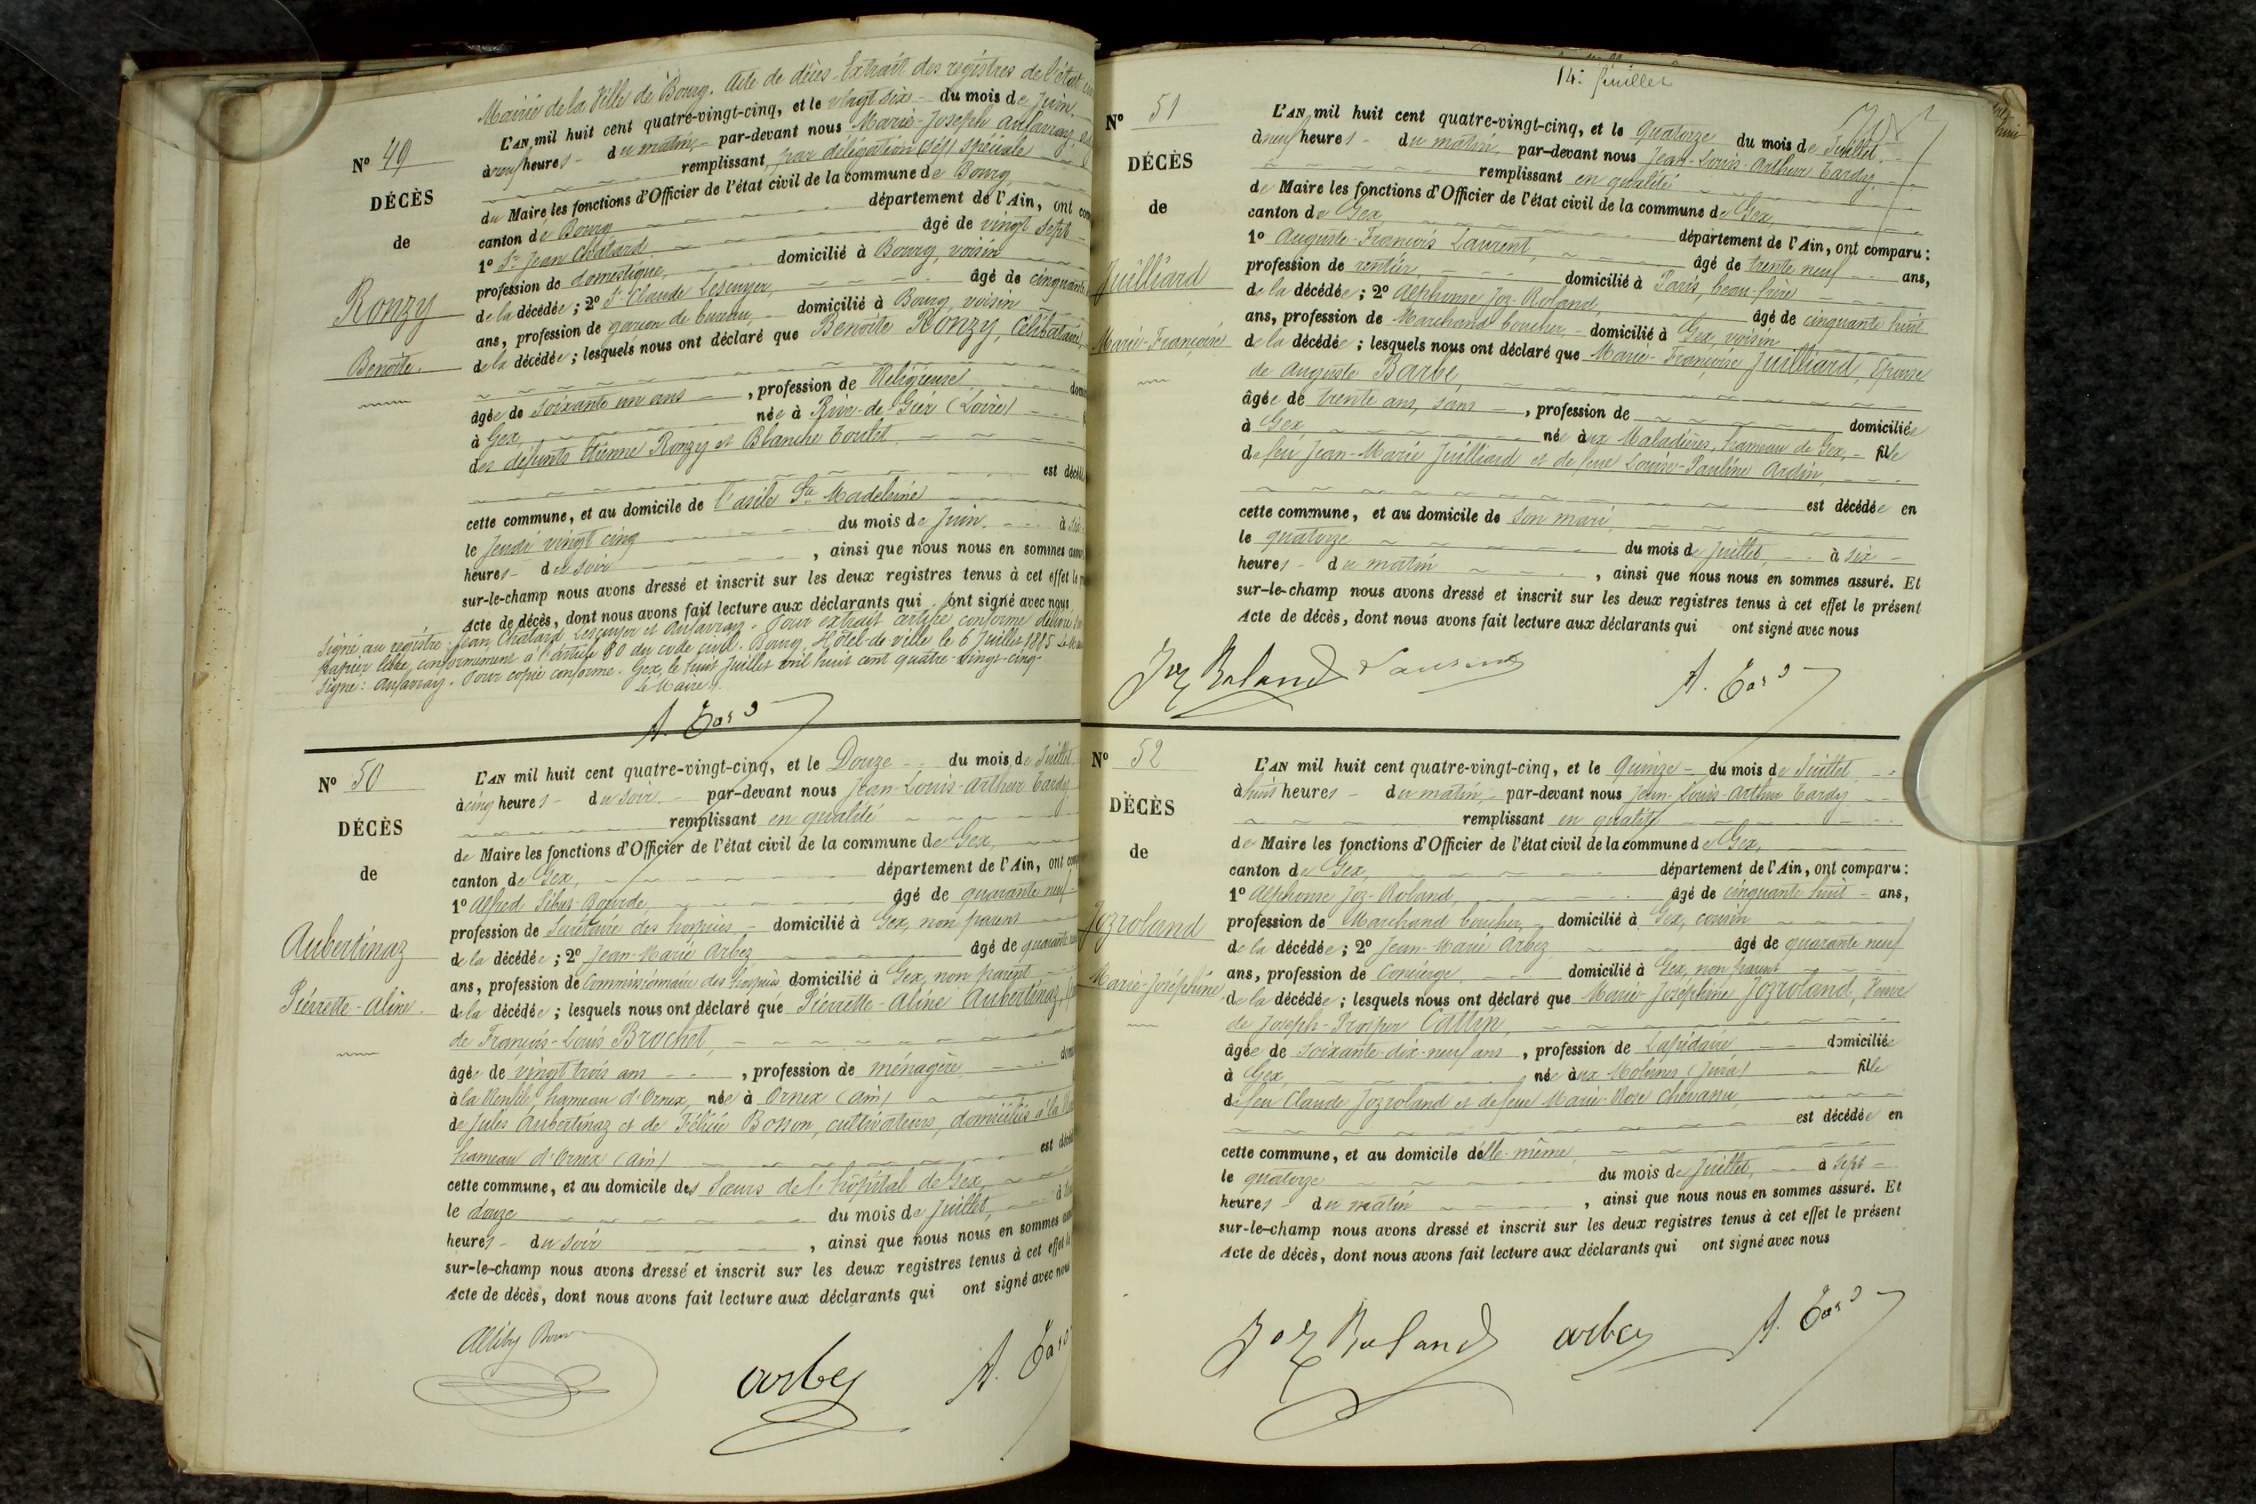 Mairie de la Ville de Bourg. Acte de décès. Extrait des registres de l'état
N° 49
DÉCÈS
de
Ronzy
Benoîte.
L'AN mil huit cent quatre-vingt-cinq, et le vingt six du mois de Juin.
à neuf heures du matin, par-devant nous Marie-Joseph
remplissant, par délégation spéciale
du Maire les fonctions d'Officier de l'état civil de la commune de Bourg,
canton de Bourg département de l'Ain, ont
1° Sr Jean Chatard âgé de vingt sept
profession de domestique, domicilié à Bourg, voisin
de la décédée ; 2° Sr Claude Lescuyer, âgé de cinquante
ans, profession de garçon de bureau, domicilié à Bourg, voisin
de la décédée ; lesquels nous ont déclaré que Benoîte Ronzy, Célibataire,
âgée de soixante un ans, profession de Religieuse
à Gex, née à Rive-de-Gier (Loire)
des défunts Etienne Ronzy et Blanche
est décédé
cette commune, et au domicile de l'asile Ste Madeleine
le Jeudi vingt cinq du mois de Juin. à
heures du soir, ainsi que nous nous en sommes
sur-le-champ nous avons dressé et inscrit sur les deux registres tenus à cet effet le
Acte de décès, dont nous avons fait lecture aux déclarants qui ont signé avec nous
Signé au registre : Jean Chatard Lescuyer et . Pour extrait certifié conforme délivré
papier libre, conformément à l'article 80 du code civil. Bourg. Hôtel-de-ville le 6 Juillet 1885
Signé : . Pour copie conforme. Gex, le huit Juillet mil huit cent quatre-vingt-cinq.
Le Maire.
A. Tardy
N° 50
DÉCÈS
de
Aubertinaz
Piérrette-Aline.
L'AN mil huit cent quatre-vingt-cinq, et le Douze du mois de Juillet
à cinq heures du soir. par-devant nous Jean-Louis-Arthur Tardy
remplissant en qualité
de Maire les fonctions d'Officier de l'état civil de la commune de Gex,
canton de Gex, département de l'Ain, ont
1° Alfred âgé de quarante neuf
profession de Secrétaire des hospices domicilié à Gex, non parent
de la décédée ; 2° Jean-Marie Arbez âgé de quarante
ans, profession de Commissionnaire des hospices domicilié à Gex, non parent
de la décédée ; lesquels nous ont déclaré que Piérrette-Aline Aubertinaz,
de François-Louis Brochet,
âgée de vingt trois ans, profession de ménagère
à la , hameau d'Ornex, née à Ornex (Ain)
de Jules Aubertinaz et de Félicie Bosson, cultivateurs, domiciliés à la
hameau d'Ornex (Ain) est
cette commune, et au domicile des Sœurs de l'hôpital de Gex,
le douze du mois de Juillet, à
heures du soir, ainsi que nous nous en sommes
sur-le-champ nous avons dressé et inscrit sur les deux registres tenus à cet effet
Acte de décès, dont nous avons fait lecture aux déclarants qui ont signé avec nous
arbez
A. Tardy
14. Juillet
N° 51
DÉCÈS
de
Juilliard
Marie-Françoise
L'AN mil huit cent quatre-vingt-cinq, et le Quatorze du mois de Juillet.
à neuf heures du matin, par-devant nous Jean-Louis-Arthur Tardy,
remplissant en qualité
de Maire les fonctions d'Officier de l'état civil de la commune de Gex
canton de Gex, département de l'Ain, ont comparu :
1° Auguste-François Laurent, âgé de trente neuf ans,
profession de rentier, domicilié à Paris, beau-frère
de la décédée ; 2° Alphonse Joz-Roland, âgé de cinquante huit
ans, profession de Marchand boucher, domicilié à Gex, voisin
de la décédée ; lesquels nous ont déclaré que Marie-Françoise Juilliard, Epouse
de Auguste Barbe,
âgée de trente ans, sans, profession de domiciliée
à Gex, née aux Maladières, hameau de Gex, fille
de feu Jean-Marie Juilliard et de feue Louise-Pauline Ardin,
est décédée en
cette commune, et au domicile de son mari
le quatorze du mois de Juillet, à six
heures du matin, ainsi que nous nous en sommes assuré. Et
sur-le-champ nous avons dressé et inscrit sur les deux registres tenus à cet effet le présent
Acte de décès, dont nous avons fait lecture aux déclarants qui ont signé avec nous
Joz Roland Laurent
A. Tardy
N° 52
DÉCÈS
de
Jozroland
Marie-Joséphine
L'AN mil huit cent quatre-vingt-cinq, et le Quinze du mois de Juillet
à huit heures du matin, par-devant nous Jean-Louis-Arthur Tardy
remplissant en qualité
de Maire les fonctions d'Officier de l'état civil de la commune de Gex,
canton de Gex, département de l'Ain, ont comparu :
1° Alphonse Joz-Roland, âgé de cinquante huit ans,
profession de Marchand boucher, domicilié à Gex, cousin
de la décédée ; 2° Jean-Marie Arbez âgé de quarante neuf
ans, profession de Concierge domicilié à Gex, non parent
de la décédée ; lesquels nous ont déclaré que Marie-Joséphine Jozroland, Veuve
de Joseph-Prosper Cattin,
âgée de soixante-dix-neuf ans, profession de Lapidaire domiciliée
à Gex, née aux Molunes (Jura) fille
de feu Claude Jozroland et de feue Marie-Rose
est décédée en
cette commune, et au domicile d'elle-même
le quatorze du mois de Juillet, à sept
heures du matin, ainsi que nous nous en sommes assuré. Et
sur-le-champ nous avons dressé et inscrit sur les deux registres tenus à cet effet le présent
Acte de décès, dont nous avons fait lecture aux déclarants qui ont signé avec nous
Joz Roland arbez A. Tardy